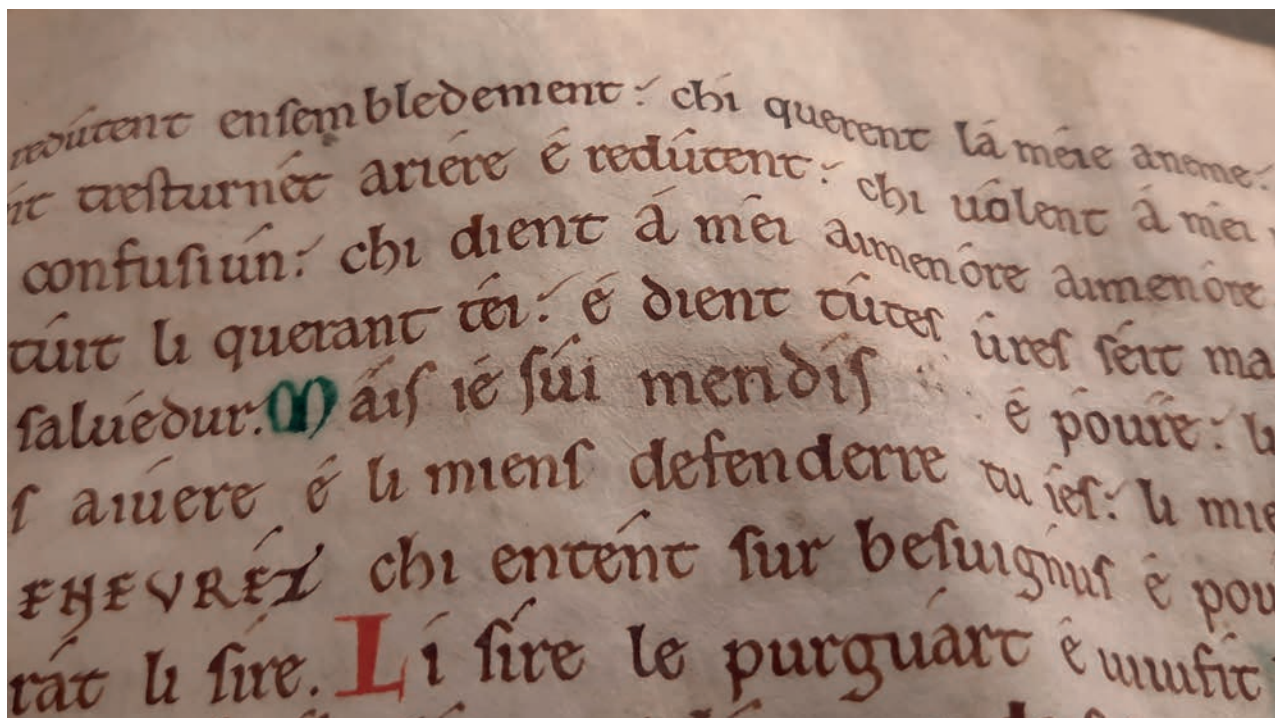 redútent ensembledement: chi querent lá méie aneme:
it tresturnét ariére é redútent: chi uólent á mei
confusiún: chi dient á méi aimenóre aimenóre
túit li querant téi: é dient tútes úres séit ma
saluédur. Máis ié súi mendis é póure: li
s aiúere é li miens defenderre tu íes: li mie
EHEVRÉZ chi entént sur besuignús é pou
rát li síre. Lí síre le purguárt é uiuifit